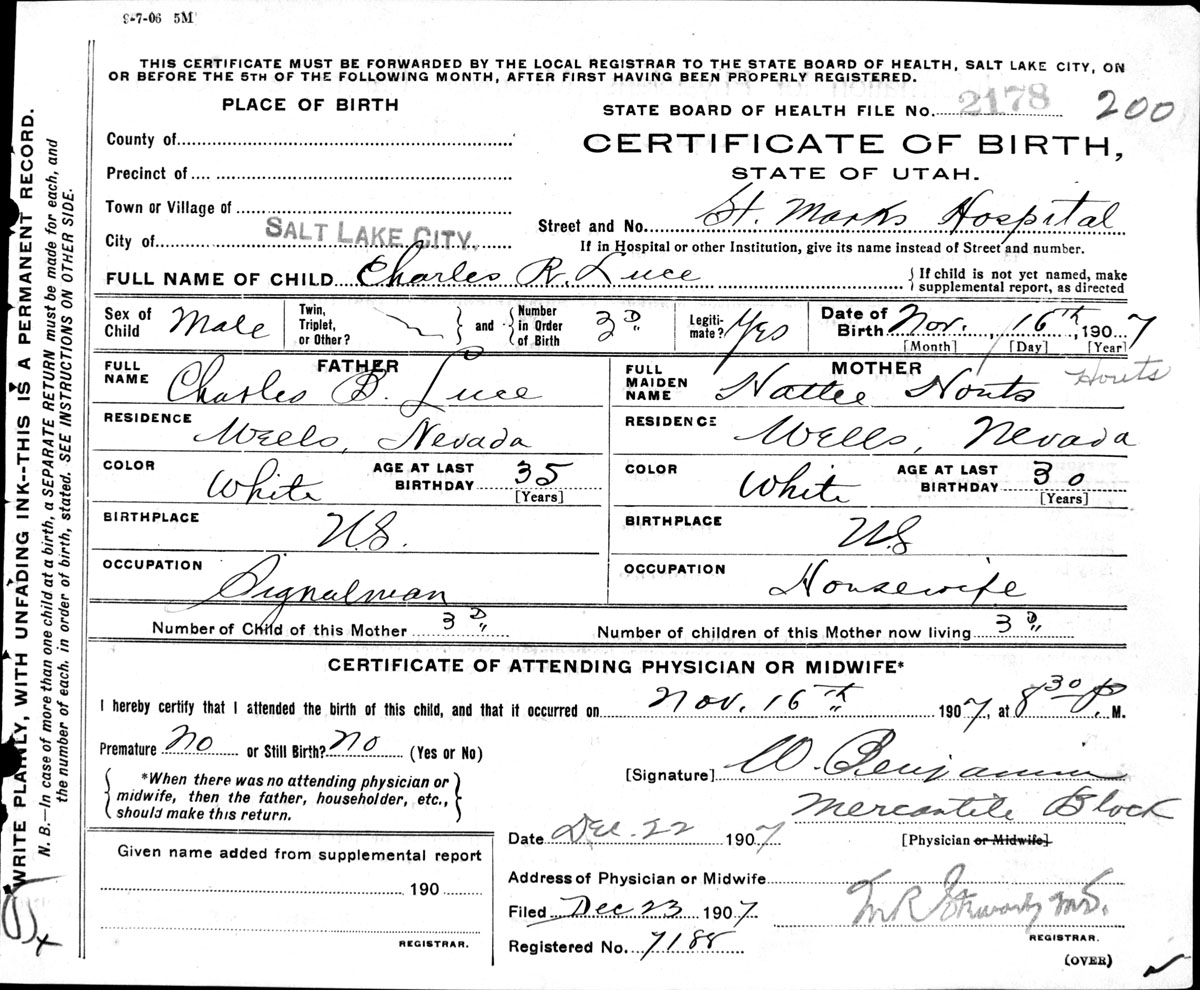 9-7-06 5M
THIS CERTIFICATE MUST BE FORWARDED BY THE LOCAL REGISTRAR TO THE STATE BOARD OF HEALTH, SALT LAKE CITY, ON
OR BEFORE THE 5TH OF THE FOLLOWING MONTH, AFTER FIRST HAVING BEEN PROPERLY REGISTERED.
WRITE PLAINLY, WITH UNFADING INK--THIS IS A PERMANENT RECORD.
N. B.—In case of more than one child at a birth, a SEPARATE RETURN must be made for each, and
the number of each, in order of birth, stated. SEE INSTRUCTIONS ON OTHER SIDE.
PLACE OF BIRTH
County of
Precinct of
Town or Village of
City of SALT LAKE CITY.
STATE BOARD OF HEALTH FILE No. 2178 200
CERTIFICATE OF BIRTH,
STATE OF UTAH.
Street and No. St. Marks Hospital
If in Hospital or other Institution, give its name instead of Street and number.
FULL NAME OF CHILD Charles R. Luce { If child is not yet named, make
supplemental report, as directed
Sex of Child Male Twin, Triplet, or Other? } and { Number in Order of Birth 3D Legiti-mate? Yes Date of Birth Nov. 16th, 1907
[Month] [Day] [Year]
FATHER
FULL NAME Charles B. Luce
RESIDENCE Wells, Nevada
COLOR White AGE AT LAST BIRTHDAY 35 [Years]
BIRTHPLACE U.S.
OCCUPATION Signalman
MOTHER
FULL MAIDEN NAME Hattee Honts Houts
RESIDENCE Wells, Nevada
COLOR White AGE AT LAST BIRTHDAY 30 [Years]
BIRTHPLACE U.S
OCCUPATION Housewife
Number of Child of this Mother 3D Number of children of this Mother now living 3D
CERTIFICATE OF ATTENDING PHYSICIAN OR MIDWIFE*
I hereby certify that I attended the birth of this child, and that it occurred on Nov. 16th 1907, at 8 30 P. M.
Premature No or Still Birth? No (Yes or No)
{ *When there was no attending physician or
midwife, then the father, householder, etc.,
should make this return. }
[Signature] W. Benjamin
Mercantile Block
Date Dec. 22 1907 [Physician or Midwife]
Given name added from supplemental report
190
REGISTRAR.
Address of Physician or Midwife
Filed Dec 23 1907
M.D.
REGISTRAR.
Registered No. 7188
(OVER)